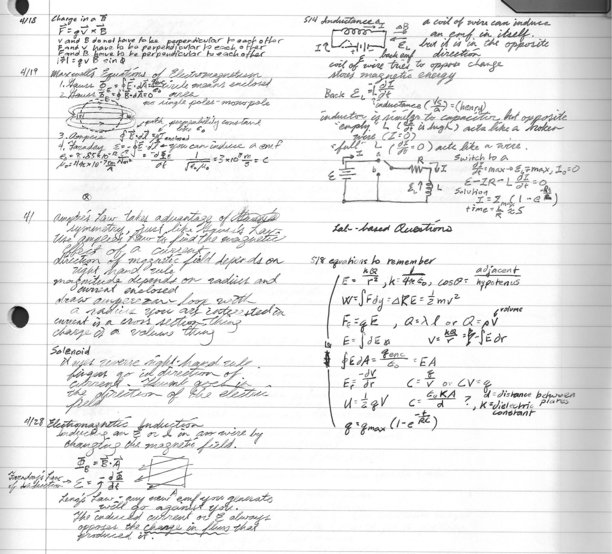 4/18 Charge in a B
F = qv × B
v and B do not have to be perpendicular to each other
F and v have to be perpendicular to each other
F and B have to be perpendicular to each other
|F| = qvB sin θ
4/19 Maxwell's Equations of Electromagnetism
1. Gauss circle means enclosed
2. Gauss area
no single poles - monopole
path permeability constant
like ε₀
3. Ampere
4. Faraday you can induce a emf
4/ Ampere's Law takes advantage of
symmetry, just like Gauss's Law.
Use Ampere's Law to find the magnetic
effect of a current
direction of magnetic field depends on
right hand rule
magnitude depends on radius and
current enclosed
draw amperean loop with
a radius you are interested in
current is a cross section thing
charge is a volume thing
Solenoid
uses reverse right-hand rule.
fingers go in direction of
current. Thumb goes in
the direction of the electric
field
4/28 Electromagnetic Induction
inducing an E or I in an wire by
changing the magnetic field.
Φ_B = B·A
Faraday's Law of Induction → ε = -dΦ/dt
Lenz's Law - any new emf you generate
will go against you.
The induced current or E always
opposes the change in flux that
produced it.
5/4 Inductance a coil of wire can induce
an emf in itself.
but it is in the opposite
direction
back emf
coil of wire tries to oppose change
stores magnetic energy
Back E_L = -L dI/dt
inductance = (henry)
inductor is similar to capacitor but opposite
"empty" L (dI/dt is high) acts like a broken
wire (I=0)
"full" L (dI/dt = 0) acts like a wire.
Switch to a
dI/dt = max → E_L = max, I₀ = 0
E - IR - L dI/dt = 0
Solution
Lab-based Questions
5/8 equations to remember
E = kQ/r², k = 1/4πε₀, cosθ = adjacent/hypotenus
W = ∫Fdy = ΔKE = ½mv²
F_E = qE, Q = λl or Q = ρV volume
E = ∫dE V = kQ/r = -∫E dr
∮E dA = q enc/ε₀ = EA
E = -dV/dr C = q/V or CV = q
U = ½qV C = ε₀KA/d ?, d = distance between plates
K = dielectric constant
q = q max (1 - e^(-t/RC))